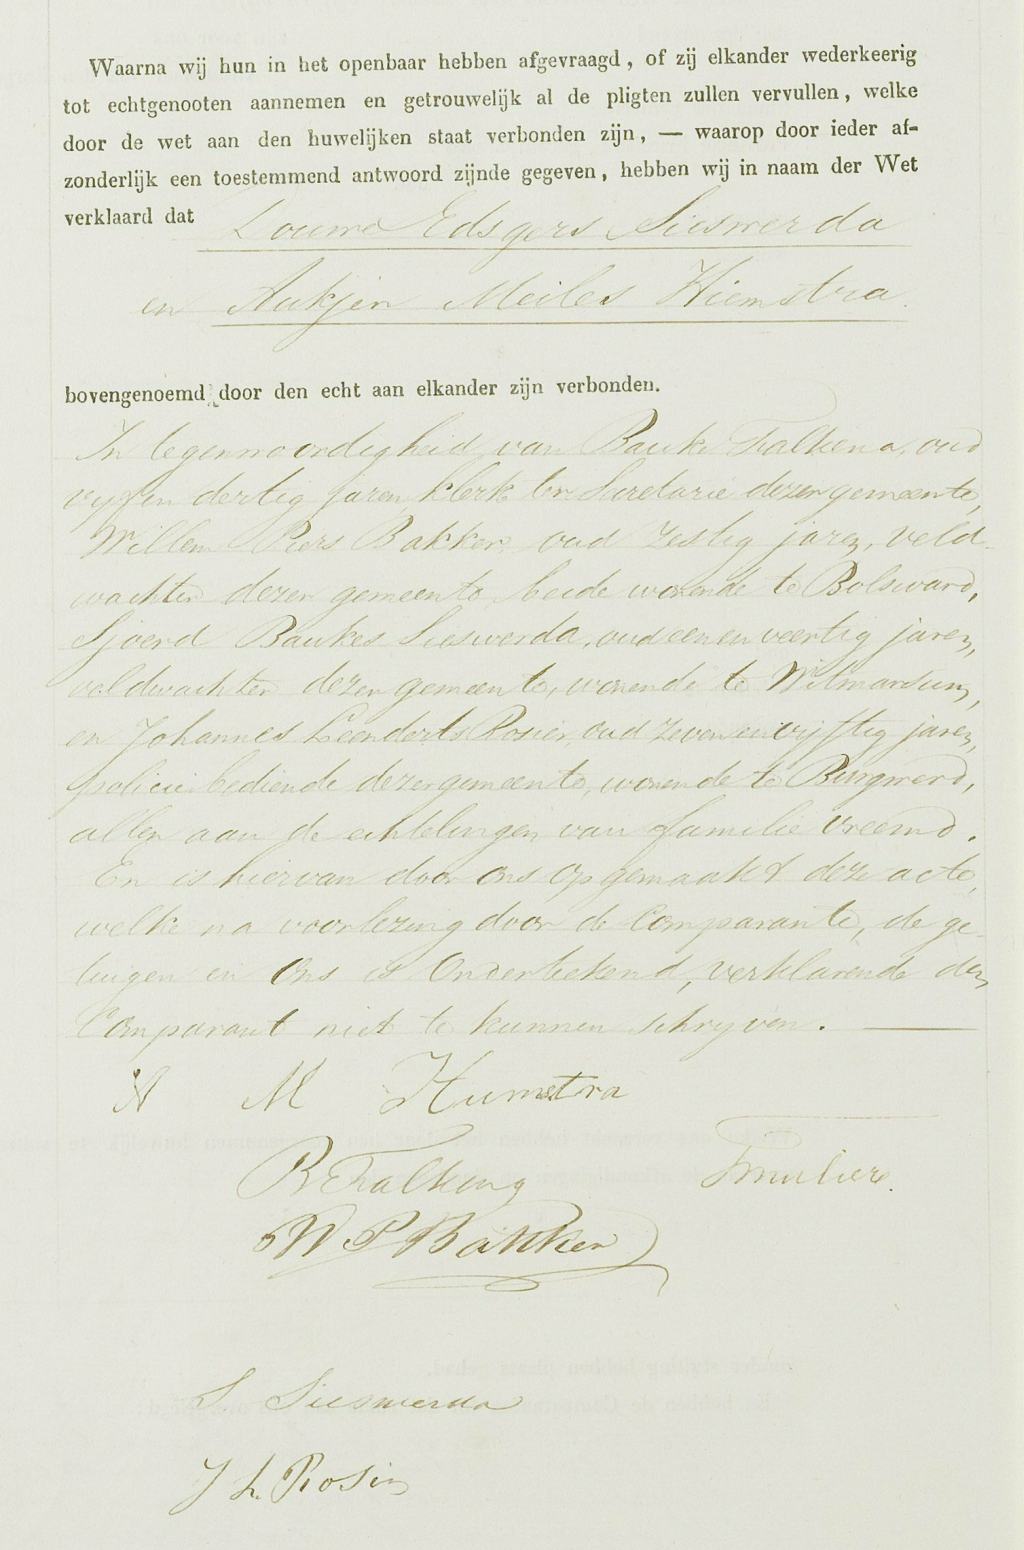 Waarna wij hun in het openbaar hebben afgevraagd, of zij elkander wederkeerig
tot echtgenooten aannemen en getrouwelijk al de pligten zullen vervullen, welke
door de wet aan den huwelijken staat verbonden zijn, — waarop door ieder af-
zonderlijk een toestemmend antwoord zijnde gegeven, hebben wij in naam der Wet
verklaard dat Douwe Edsgers Sieswerda
en Aukjen Meiles Hiemstra.
bovengenoemd door den echt aan elkander zijn verbonden.
In tegenwoordigheid van Bauke Falkena, oud
vyf en dertig jaren, klerk ter Secretarie dezer gemeente,
Willem Piers Bakker, oud zestig jaren, veld-
wachter dezer gemeente, beide wonende te Bolsward,
Sjoerd Baukes Sieswerda, oud een en veertig jaren,
veldwachter dezer gemeente, wonende te Witmarsum,
en Johannes Leenderts Rosier, oud zeven en vyftig jaren,
policie bediende dezer gemeente, wonende te Burgwerd,
allen aan de echtelingen van familie vreemd.
En is hiervan door ons opgemaakt deze acte,
welke na voorlezing door de Comparante, de ge-
tuigen en Ons is Onderteekend, verklarende den
Comparant niet te kunnen schryven.
A M Humstra
B Falkena
W P Bakker
S. Sieswerda
J L. Rosier